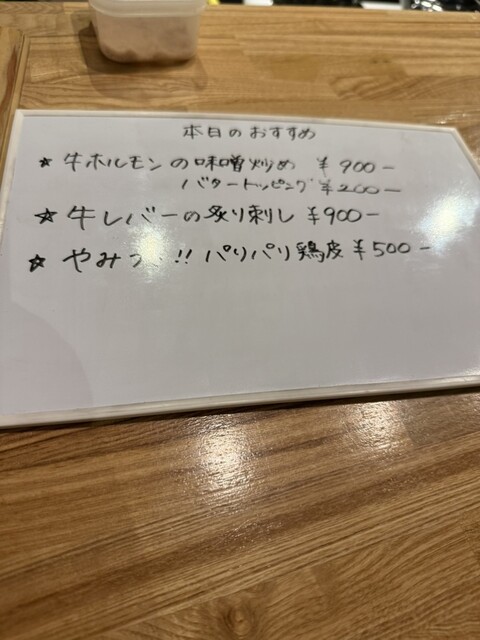 本日のおすすめ
★ 牛ホルモンの味噌炒め ¥900-
バタートッピング ¥200-
★ 牛レバーの炙り刺し ¥900-
☆ !! パリパリ鶏皮 ¥500-